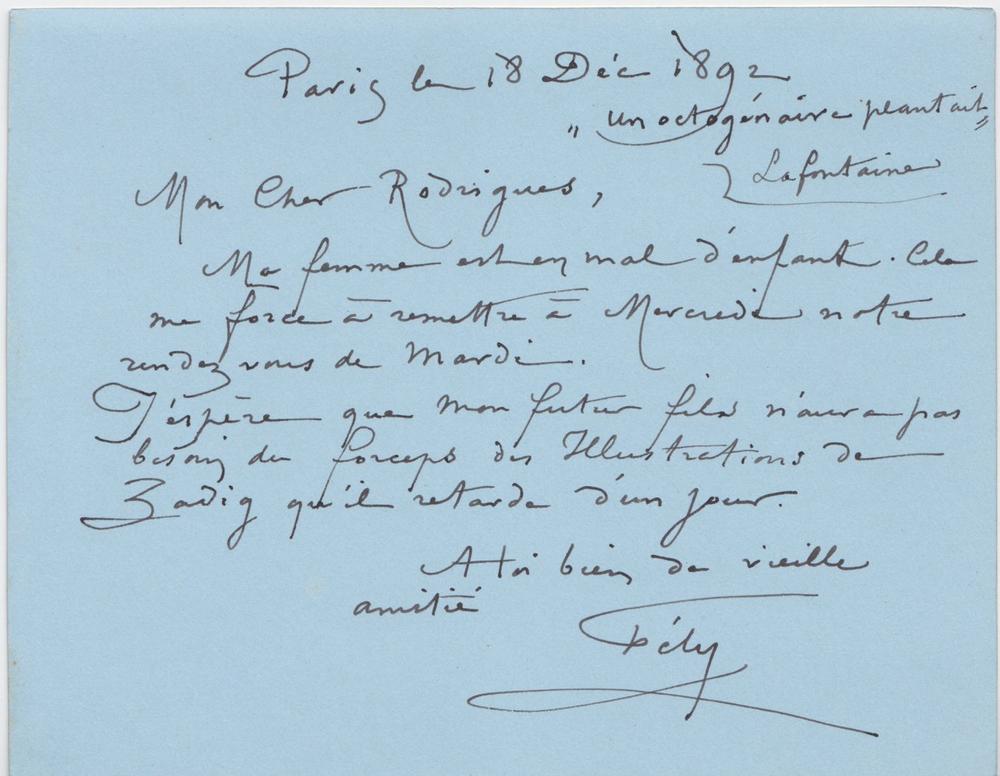 Paris le 18 Déc 1892
„ un octogénaire plantait „
Lafontaine
Mon Cher Rodrigues,
Ma femme est en mal d'enfant. Cela
me force à remettre à Mercredi notre
rendez vous de Mardi.
J'éspère que mon futur fils n'aura pas
besoin du forceps des Illustrations de
Zadig qu'il retarde d'un jour.
A toi bien de vieille
amitié
Fély